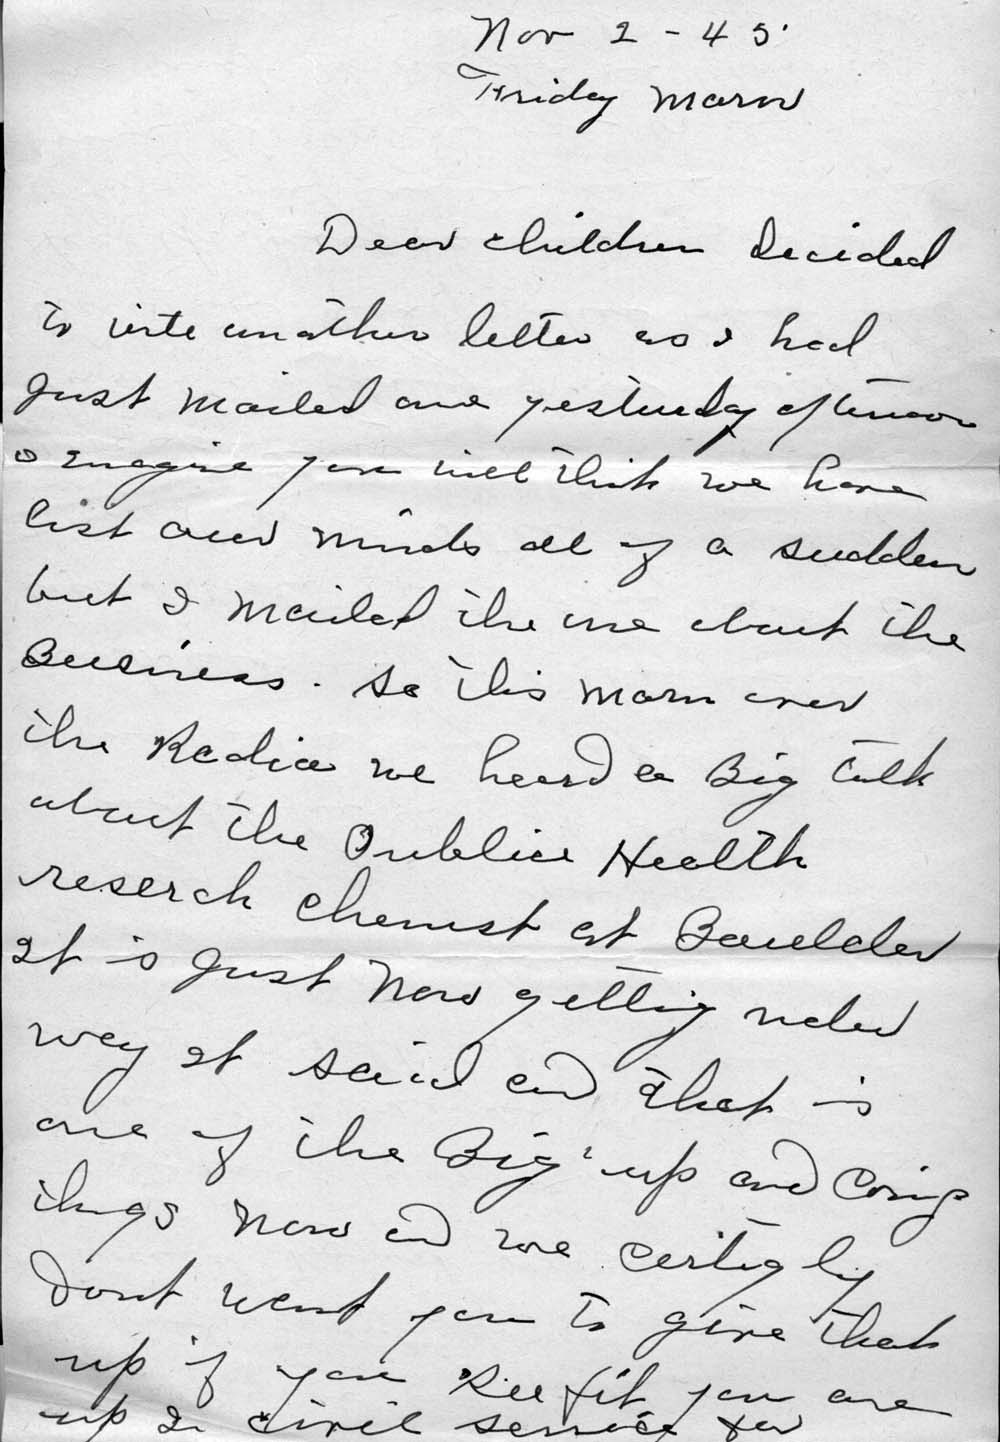 Nov 2 - 45
Friday Morn
Dear children decided
to write another letter as I had
just mailed one yesturday afternoon
I imagine you will think we have
lost our minds all of a sudden
but I mailed the one about the
Business. So this morn over
the Radio we heard a Big talk
about the Public Health
reserch chemist at Boulder
It is just now getting under
way It said and that is
one of the Big up and coming
things now and we
dont want you to give that
up if you you are
up in civil service for